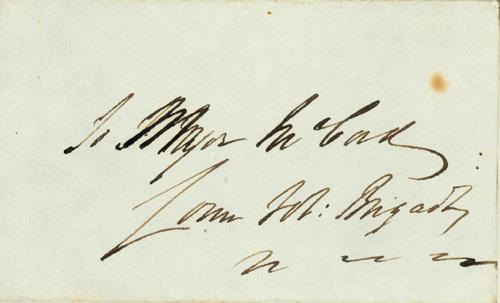 To Major McCord
Comm Vol: Brigade